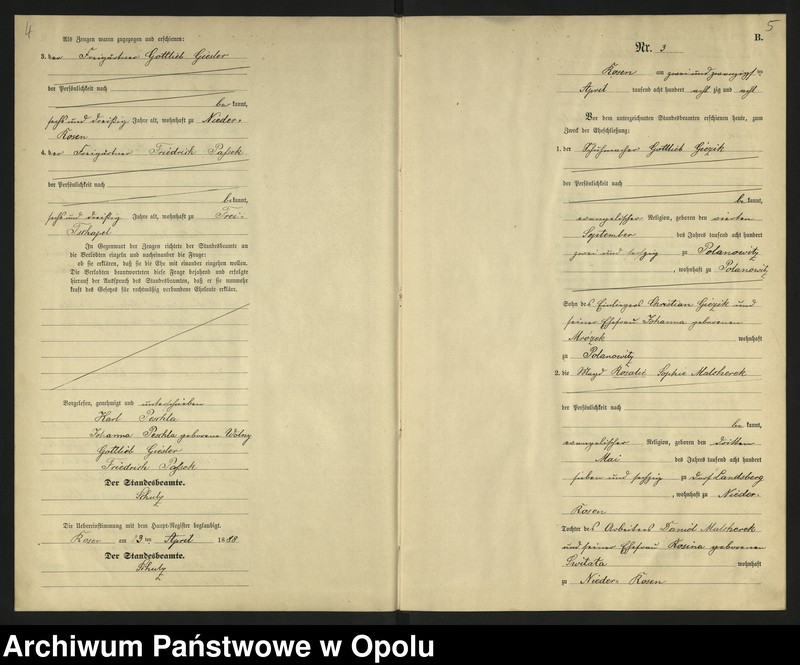 4
Als Zeugen waren zugezogen und erschienen:
3. der Freigärtner Gottlieb Giesler
der Persönlichkeit nach
be kannt,
sechs und dreißig Jahre alt, wohnhaft zu Nieder-
Kosen
4. der Freigärtner Friedrich
der Persönlichkeit nach
be kannt,
sechs und dreißig Jahre alt, wohnhaft zu Frei-
Tschapel
In Gegenwart der Zeugen richtete der Standesbeamte an
die Verlobten einzeln und nacheinander die Frage:
ob sie erklären, daß sie die Ehe mit einander eingehen wollen.
Die Verlobten beantworteten diese Frage bejahend und erfolgte
hierauf der Ausspruch des Standesbeamten, daß er sie nunmehr
kraft des Gesetzes für rechtmäßig verbundene Eheleute erkläre.
Vorgelesen, genehmigt und unterschrieben
Karl Peschla
Johanna Peschla geborene Wolny
Gottlieb Giesler
Friedrich
Der Standesbeamte.
Schulz
Die Uebereinstimmung mit dem Haupt-Register beglaubigt.
Kosen am 3 ten April 1888
Der Standesbeamte.
Schulz
5
B.
Nr. 3
Kosen am zwei und zwanzigsten
April tausend acht hundert acht zig und acht
Vor dem unterzeichneten Standesbeamten erschienen heute, zum
Zweck der Eheschließung:
1. der Schuhmacher Gottlieb Giezik
der Persönlichkeit nach
be kannt,
evangelischer Religion, geboren den vierten
September des Jahres tausend acht hundert
zwei und sechzig zu Polanowitz
, wohnhaft zu Polanowitz
Sohn des Einliegers Christian Giezik und
seiner Ehefrau Johanna geborenen
Mrózek wohnhaft
zu Polanowitz
2. die Magd Rosalie Sophie Malcherek
der Persönlichkeit nach
be kannt,
evangelischer Religion, geboren den dritten
Mai des Jahres tausend acht hundert
sieben und sechzig zu Dorf Landsberg
, wohnhaft zu Nieder-
Kosen
Tochter des Arbeiters Daniel Malcherek
und seiner Ehefrau Rosina geborenen
Switala wohnhaft
zu Nieder- Kosen
Archiwum Państwowe w Opolu